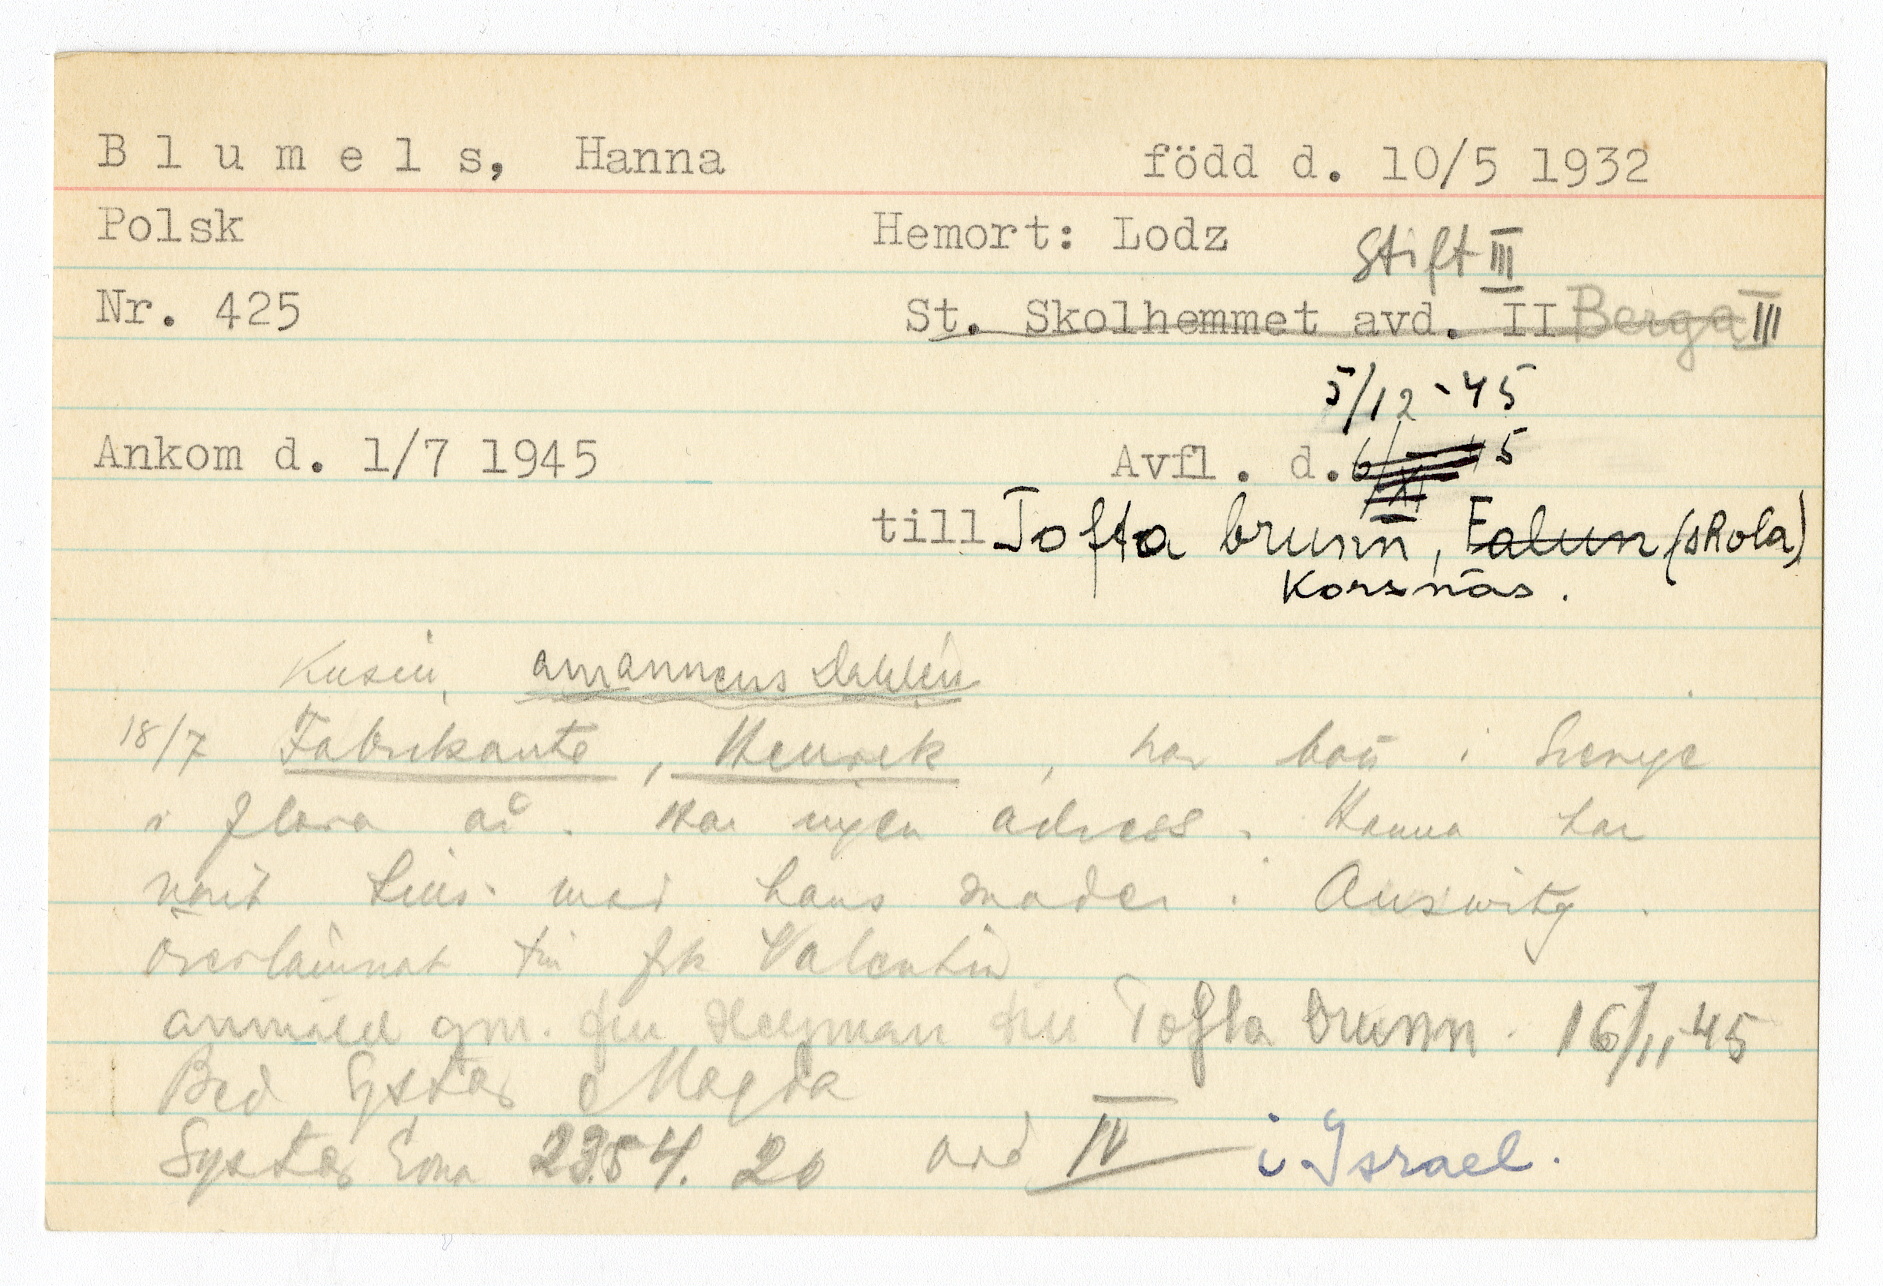 Blumels, Hanna född d. 10/5 1932
Polsk Hemort: Lodz Stift III
Nr. 425 St. Skolhemmet avd. II Berga III
5/12 -45
Ankom d. 1/7 1945 Avfl. d. 6/XI 45
till Tofta brunn, Falun (skola)
Korsnäs.
Kusin, amanuens Dahlin
18/7 Fabrikante, Henrek, har bott i Sverge
i flera år. Har ingen adress. Hanna har
varit tills. med hans moder i Auswitz.
överlämnat till frk Valentin
anmäld gm. fru Heyman till Tofta brunn. 16/11 45
Bed Syster Magda
Syster Erna 23.54.20 avd IV i Israel.